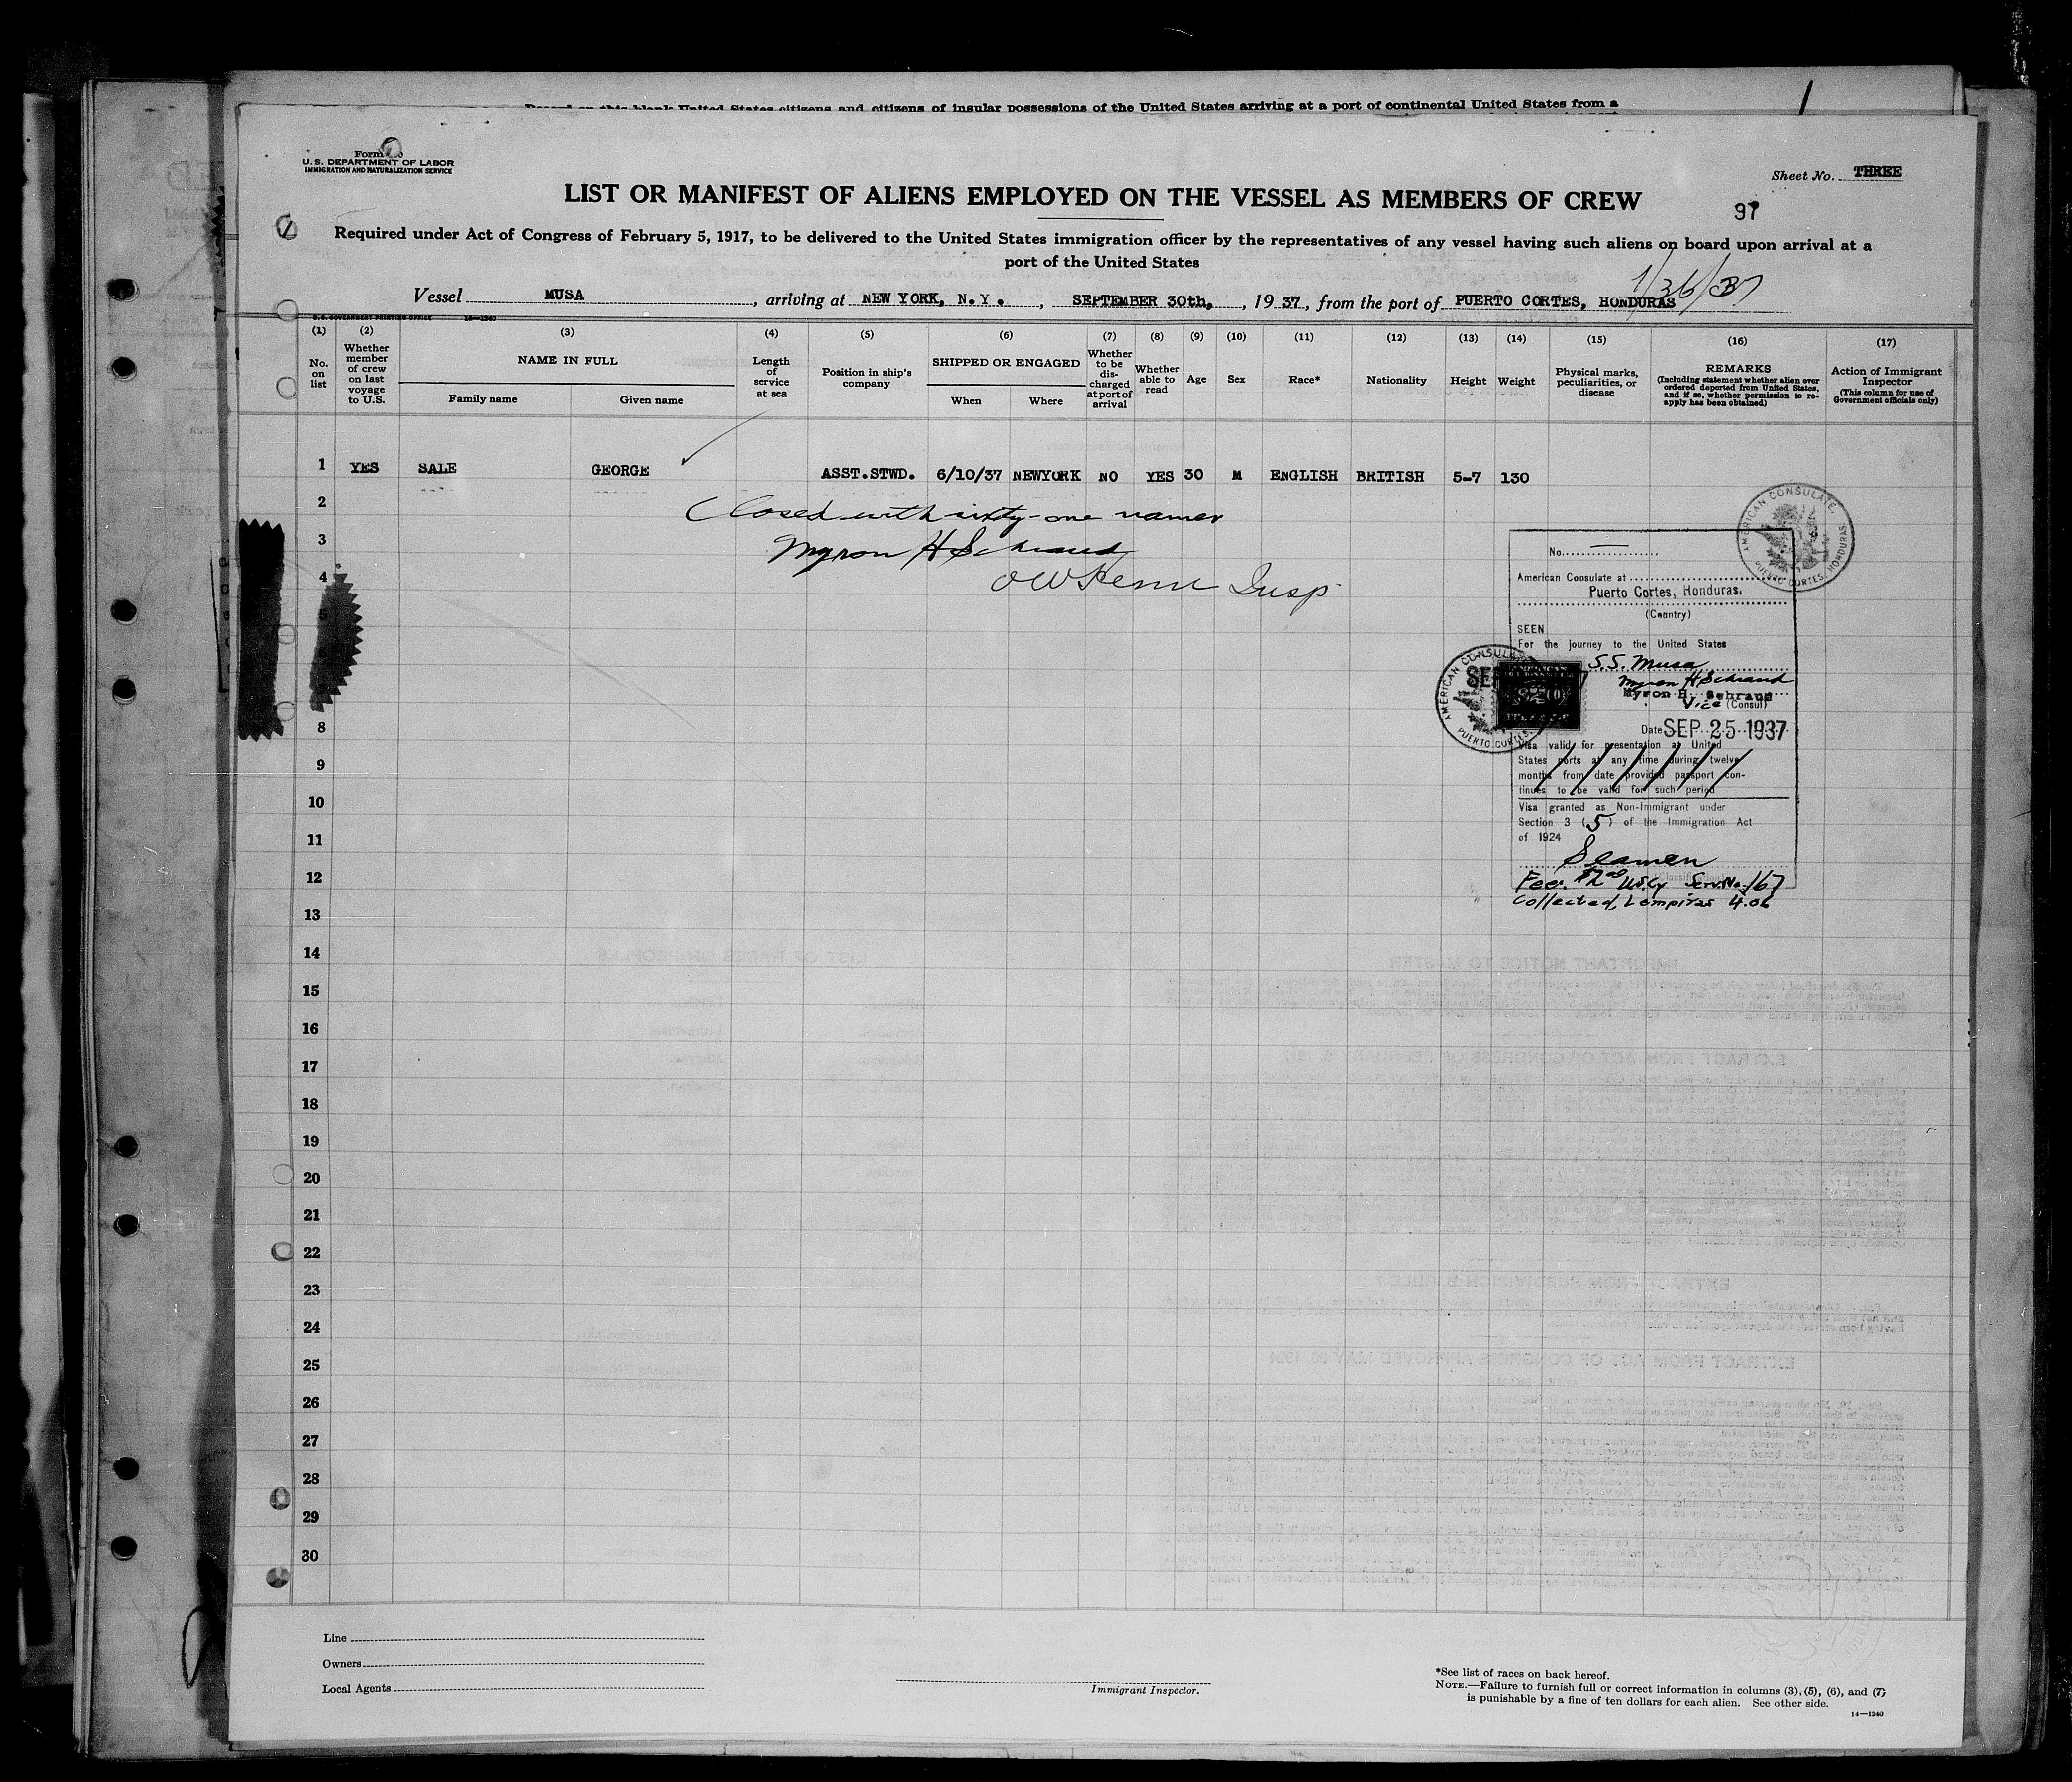 United States citizens and citizens of insular possessions of the United States arriving at a port of continental United States from a
Form
U. S. DEPARTMENT OF LABOR
IMMIGRATION AND NATURALIZATION SERVICE
Sheet No. THREE
LIST OR MANIFEST OF ALIENS EMPLOYED ON THE VESSEL AS MEMBERS OF CREW
97
Required under Act of Congress of February 5, 1917, to be delivered to the United States immigration officer by the representatives of any vessel having such aliens on board upon arrival at a
port of the United States
Vessel MUSA, arriving at NEW YORK, N.Y., SEPTEMBER 30th, 1937, from the port of PUERTO CORTES, HONDURAS
U. S. GOVERNMENT PRINTING OFFICE 14—1240
(1) (2) (3) (4) (5) (6) (7) (8) (9) (10) (11) (12) (13) (14) (15) (16) (17)
No. on list
Whether member of crew on last voyage to U.S.
NAME IN FULL
Family name Given name
Length of service at sea
Position in ship's company
SHIPPED OR ENGAGED
When Where
Whether to be discharged at port of arrival
Whether able to read
Age
Sex
Race*
Nationality
Height
Weight
Physical marks, peculiarities, or disease
REMARKS
(Including statement whether alien ever ordered deported from United States, and if so, whether permission to reapply has been obtained)
Action of Immigrant Inspector
(This column for use of Government officials only)
1 YES SALE GEORGE ASST.STWD. 6/10/37 NEWYORK NO YES 30 M ENGLISH BRITISH 5-7 130
2 Closed with sixty-one names
3 Myron H Schraud
4 Insp
8
9
10
11
12
13
14
15
16
17
18
19
20
21
22
23
24
25
26
27
28
29
30
AMERICAN CONSULATE.
PUERTO CORTES, HONDURAS
No.
American Consulate at
Puerto Cortes, Honduras.
(Country)
SEEN
For the journey to the United States
S.S. Musa
Myron H Schraud
Myron H. Schraud
Vice (Consul)
Date SEP 25 1937
AMERICAN CONSULATE
PUERTO CORTES
Visa valid for presentation at United
States ports at any time during twelve
months from date provided passport con-
tinues to be valid for such period
Visa granted as Non-Immigrant under
Section 3 (5) of the Immigration Act
of 1924
Seamen
(Classification)
Fee: $2.00 Serv. No. 167
Collected, Lempiras 4.0
Line
Owners
Local Agents
Immigrant Inspector.
*See list of races on back hereof.
NOTE.—Failure to furnish full or correct information in columns (3), (5), (6), and (7)
is punishable by a fine of ten dollars for each alien. See other side.
14—1240